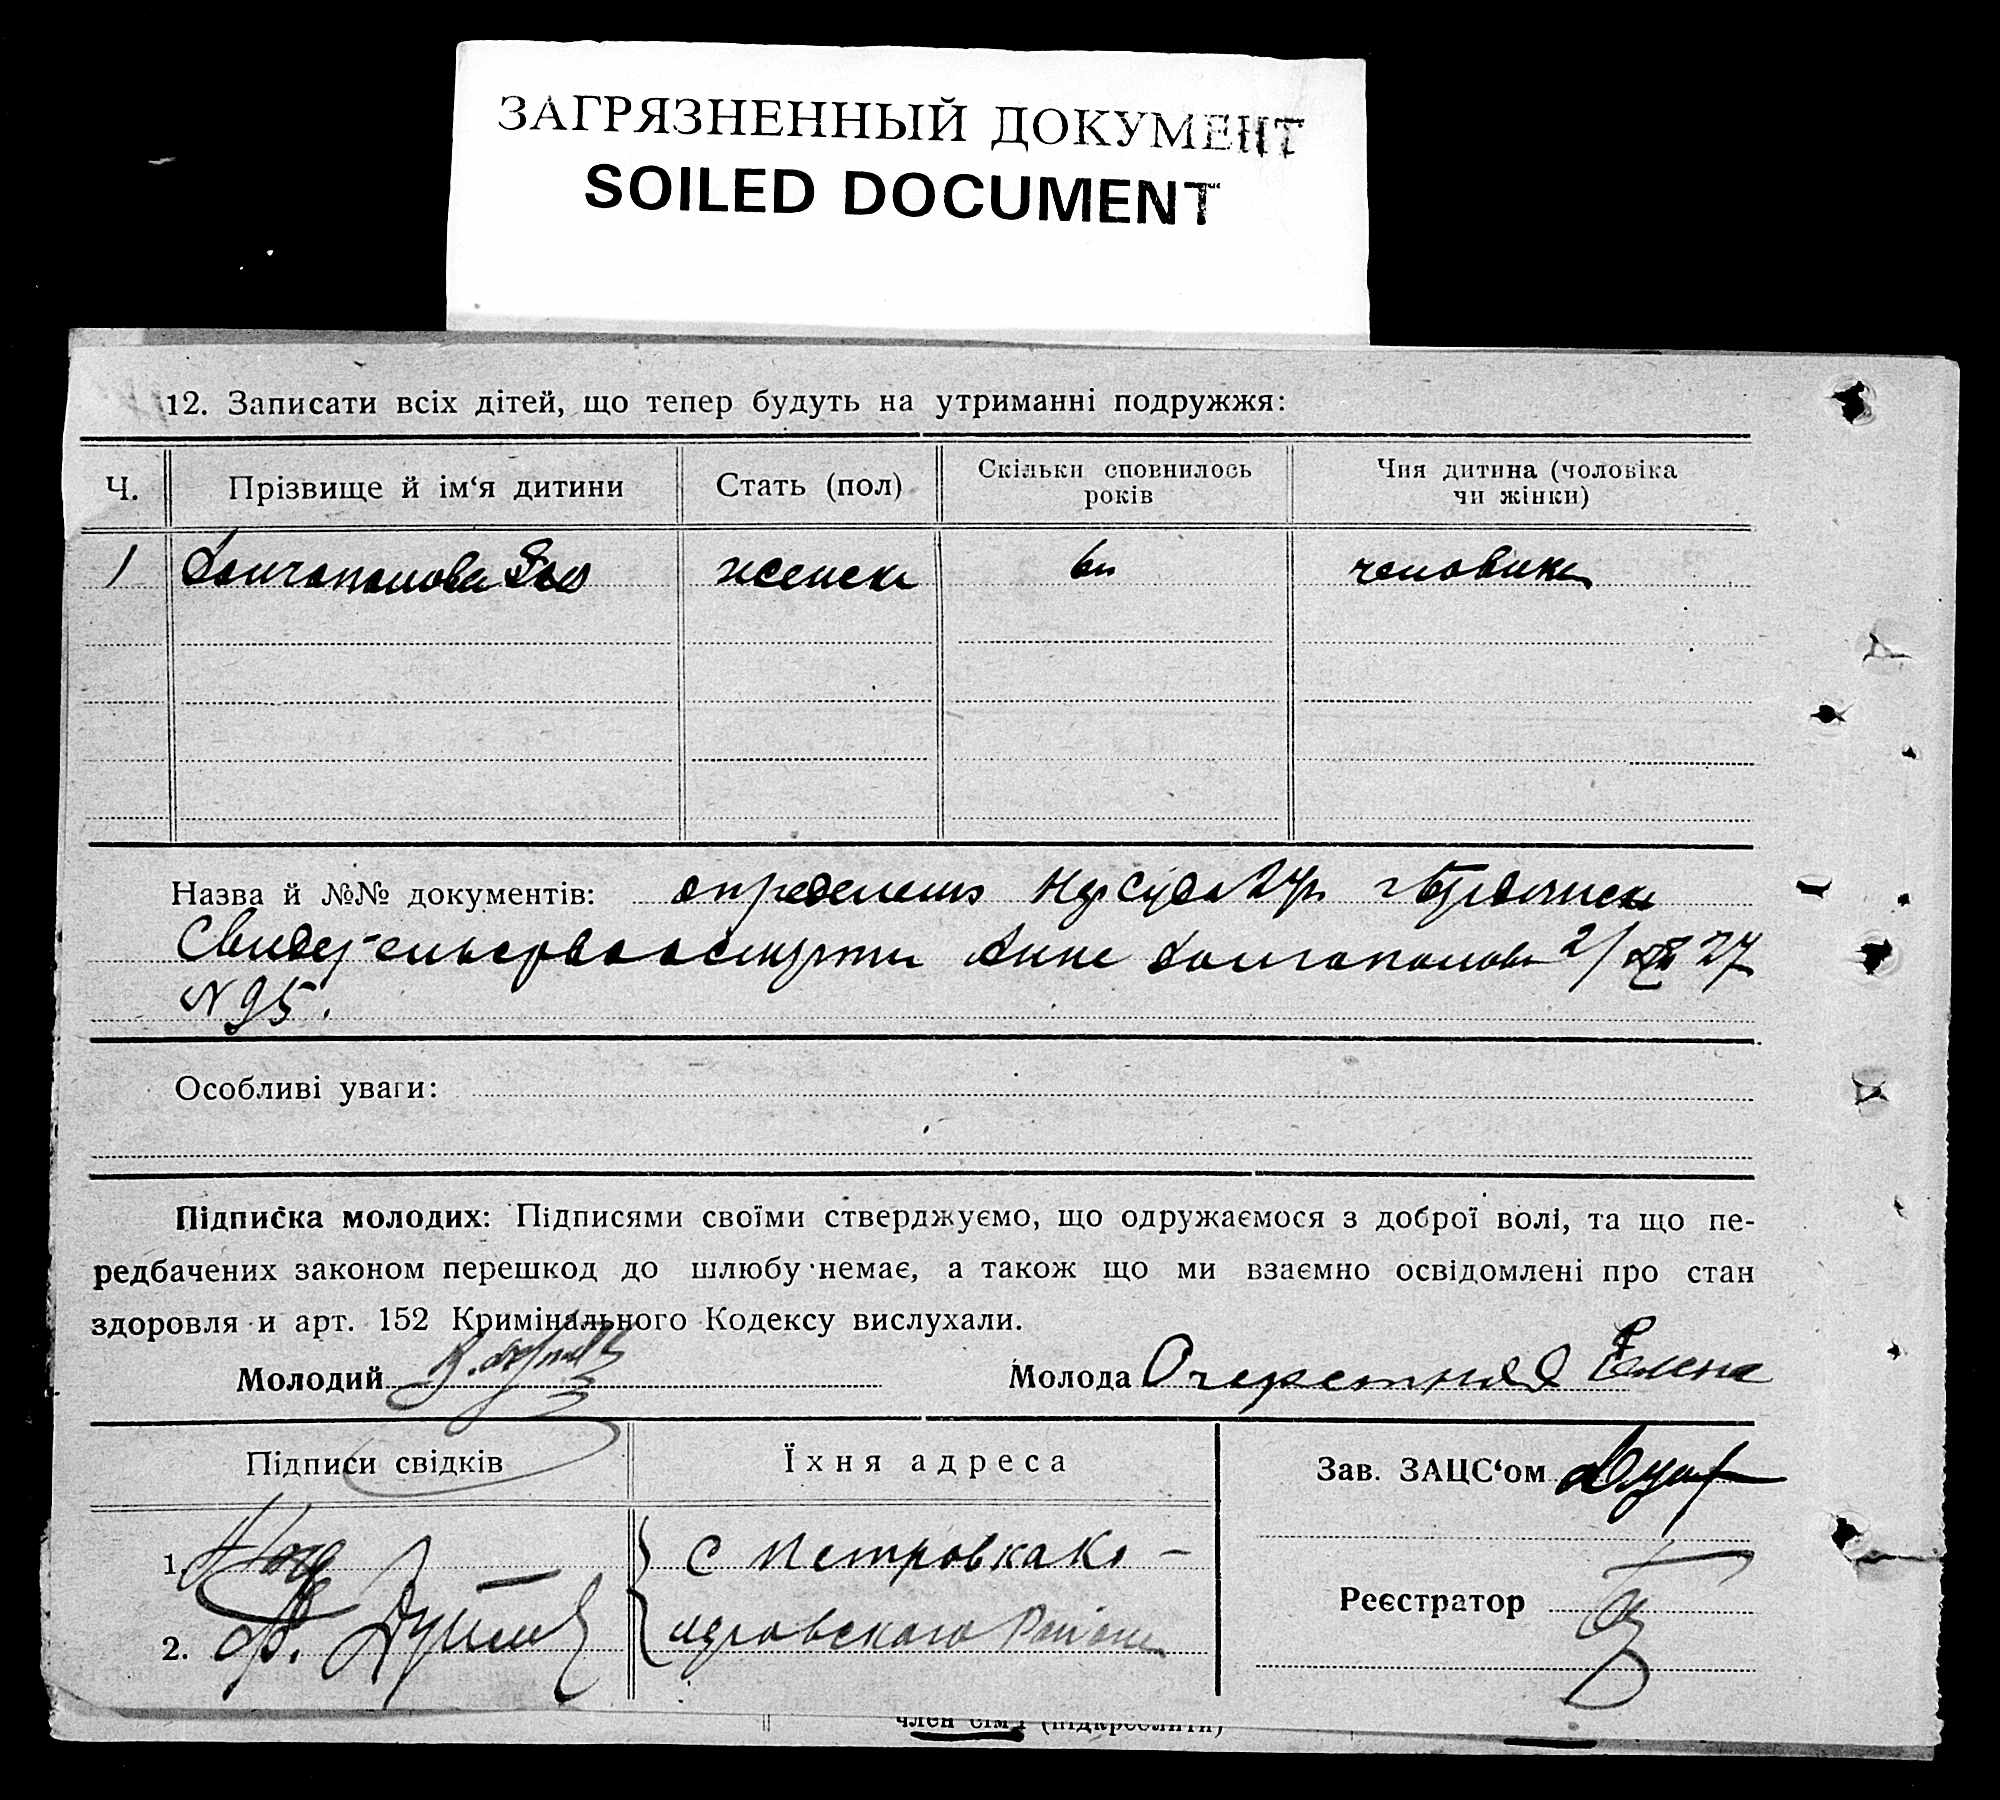 ЗАГРЯЗНЕННЫЙ ДОКУМЕНТ
SOILED DOCUMENT
12. Записати всіх дітей, що тепер будуть на утриманні подружжя:
Ч. Прізвище й ім‘я дитини Стать (пол) Скільки сповнилось років Чия дитина (чоловіка чи жінки)
1 Долгополова женск 6 человика
Назва й №№ документів: определения Нарсуда
Свидетельство о смерти Анне Долгополова 2/ 27
N 95.
Особливі уваги:
Підписка молодих: Підписями своїми стверджуємо, що одружаємося з доброї волі, та що пе-
редбачених законом перешкод до шлюбу немає, а також що ми взаємно освідомлені про стан
здоровля и арт. 152 Кримінального Кодексу вислухали.
Молодий Молода Очеретняя Елена
Підписи свідків Їхня адреса Зав. ЗАЦС‘ом
1. с Петровка
2. Района
Реєстратор
член сім‘ї (підкреслити)